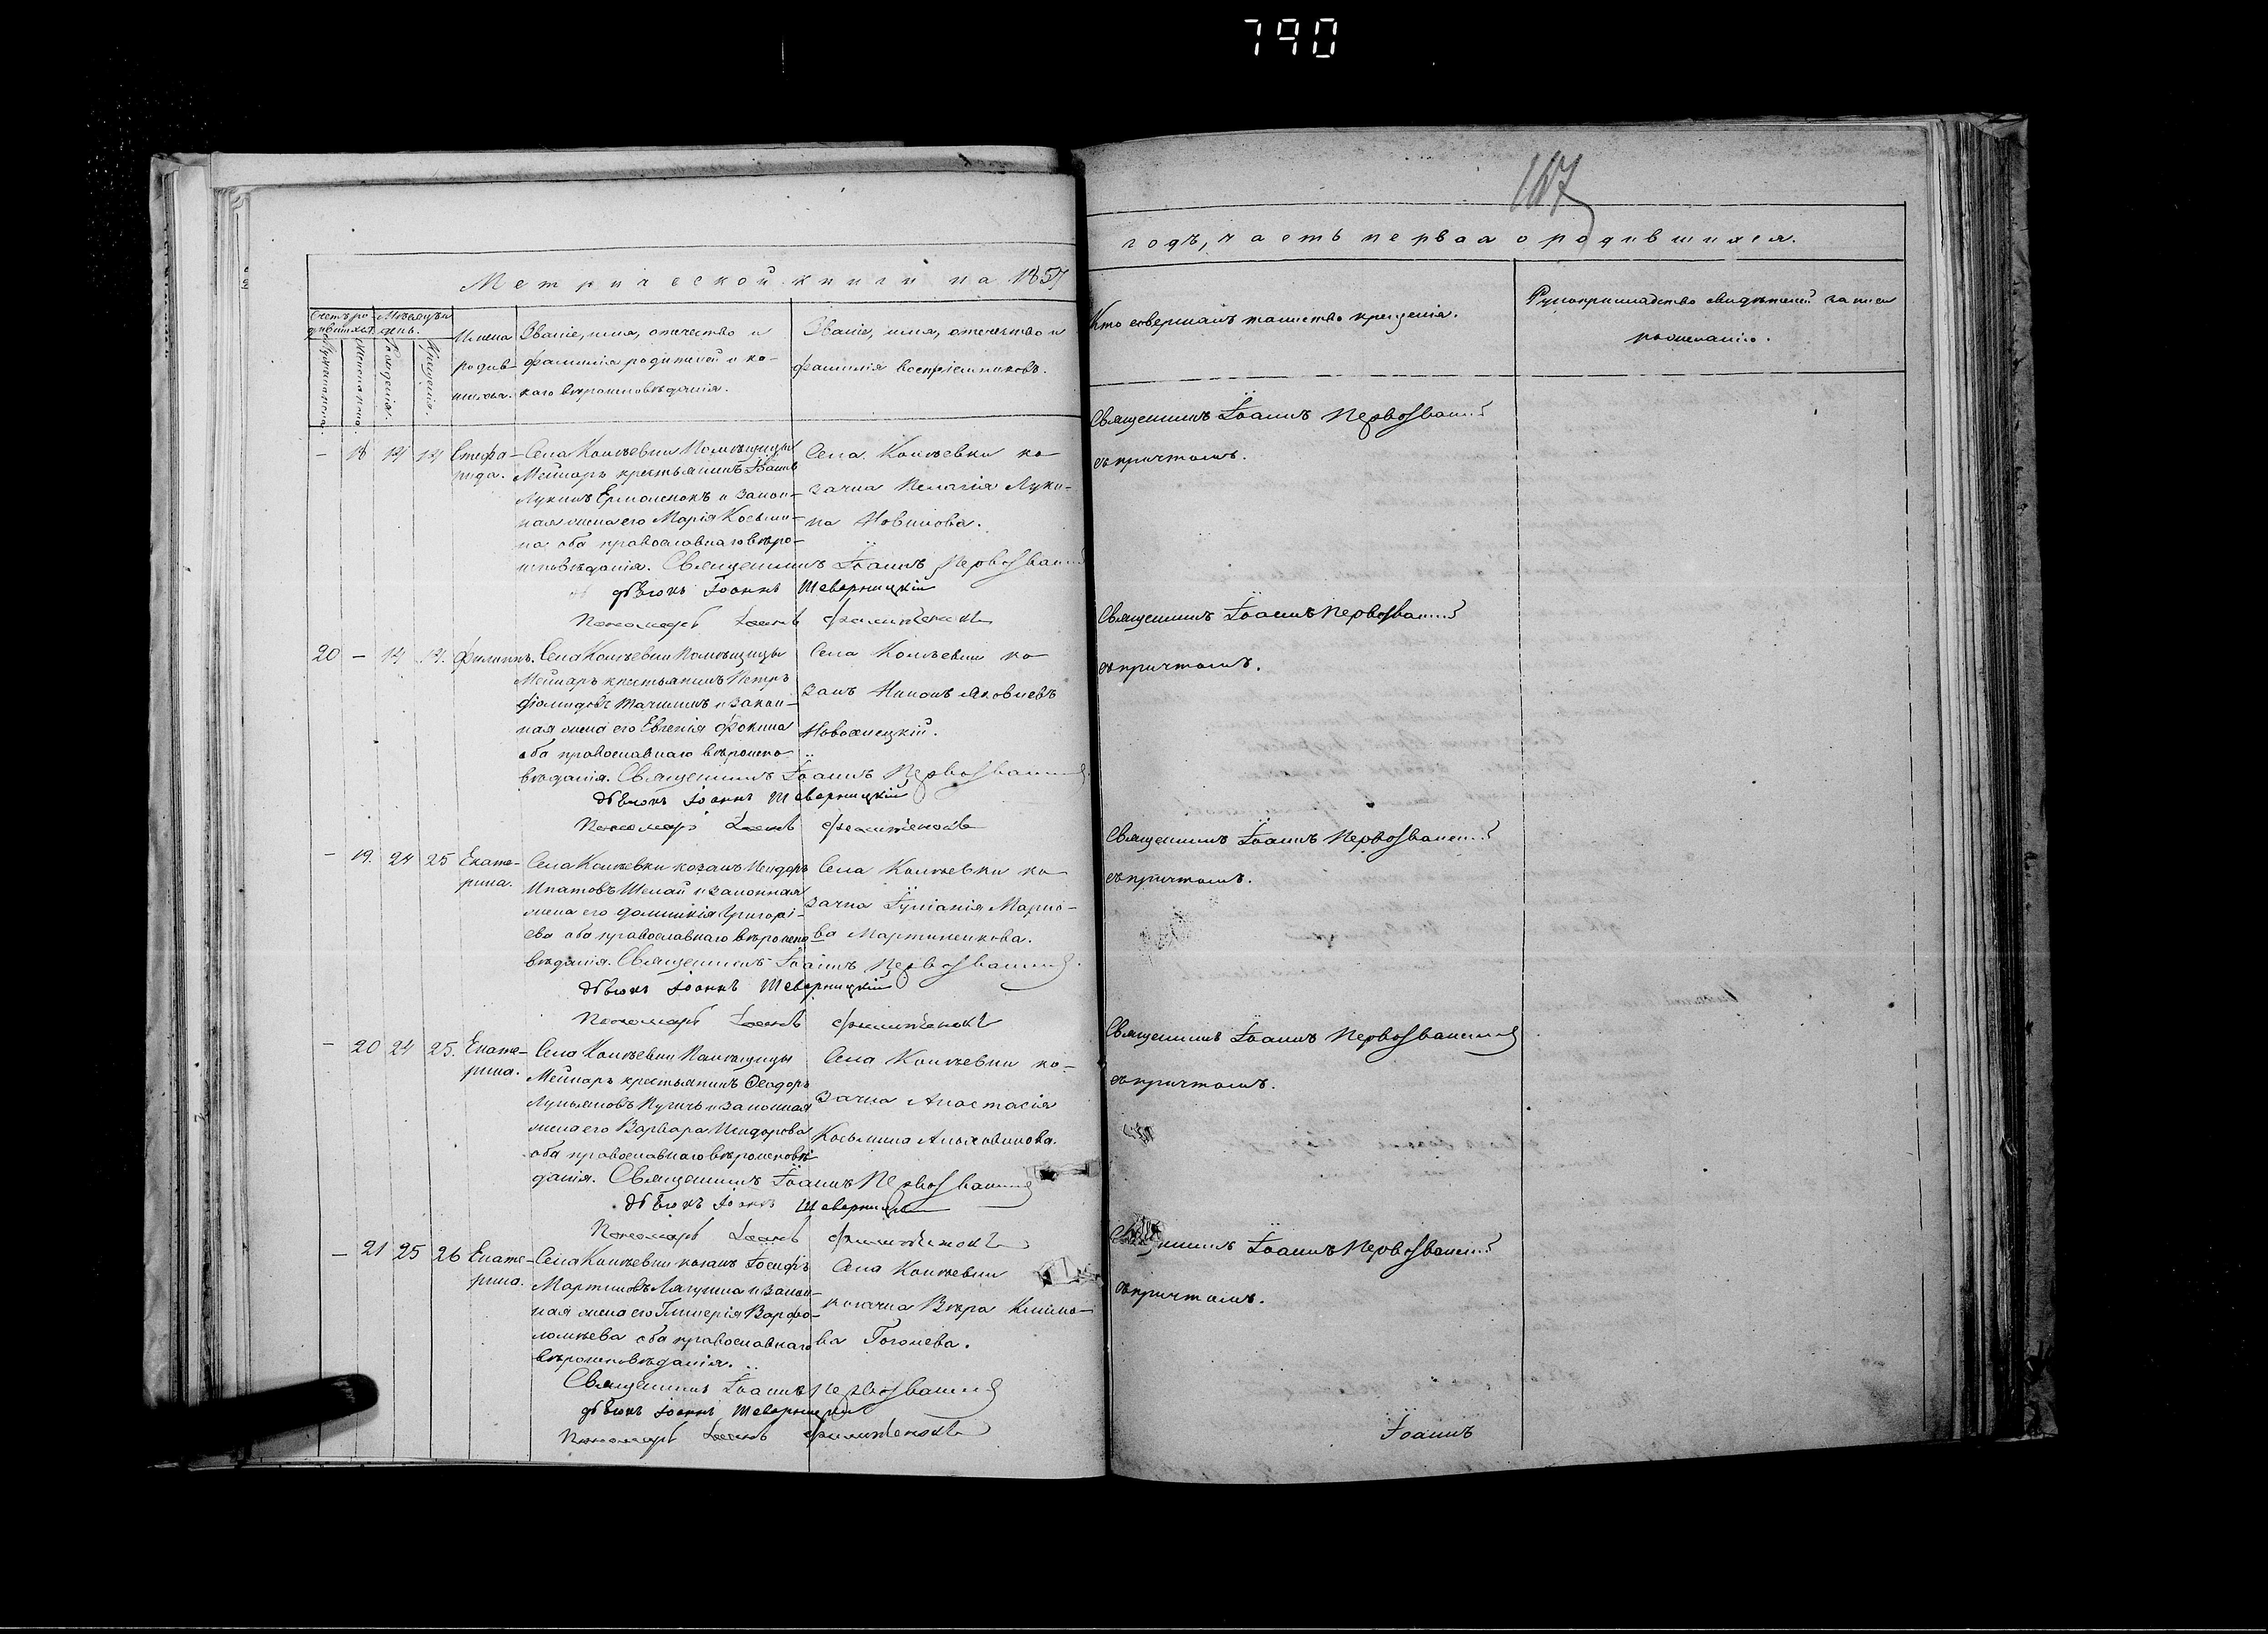 790
167
Метрической книги на 1857
годъ, часть первая о родившихся.
Счетъ ро-
дившихся.
Мѣсяцъ и
день.
Мужескаго
Женскаго
Рожденія.
Крещенія.
Имена
родив-
шихся.
Званіе, имя, отечество и
фамилія родителей и ка-
кого вѣроисповѣданія.
Званіе, имя, отечество и
фамилія воспріемниковъ.
Кто совершалъ таинство крещенія.
Рукоприкладство свидѣтелей записи
по желанію.
— 18 14 14 Стефа-
нида.
Села Кошевки Помѣщицы
Мейнаръ крестьянинъ
Лукинъ Ермоленокъ и закон-
ная жена его Марія Косьми-
на оба православнаго вѣро-
исповѣданія. Священникъ Іоаннъ Первозванный
дьяконъ Іоаннъ Шеверницкій
Пономарь
Села Кошевки ко-
зачка Пелагія Луки-
на Новикова.
Священникъ Іоаннъ Первозванный
съ причтомъ.
20 — 14 14. Филиппъ.
Села Кошевки Помѣщицы
Мейнаръ крестьянинъ Петръ
и закон-
ная жена его Евгенія Фокина
оба православнаго вѣроиспо-
вѣданія. Священникъ Іоаннъ Первозванный
дьяконъ Іоаннъ Шеверницкій
Пономарь
Села Кошевки ко-
закъ Никонъ Яковлевъ
Священникъ Іоаннъ Первозванный
съ причтомъ.
— 19. 24 25 Екате-
рина.
Села Кошевки козакъ Исидоръ
Ипатовъ Шелай и законная
жена его Домникія Григорі-
ева оба православнаго вѣроиспо
вѣданія. Священникъ Іоаннъ Первозванный.
дьяконъ Іоаннъ Шеверницкій
Пономарь
Села Кошевки ко-
зачка Іуліанія Марко-
ва Мартиненкова.
Священникъ Іоаннъ Первозванный
съ причтомъ.
— 20 24 25. Екате-
рина.
Села Кошевки Помѣщицы
Мейнаръ крестьянинъ Ѳеодоръ
Лукьяновъ и законная
жена его Варвара Исидорова
оба православнаго вѣроисповѣ
данія. Священникъ Іоаннъ Первозванный
дьяконъ Іоаннъ Шеверницкій
Пономарь
Села Кошевки ко-
зачка Анастасія
Косьмина
Священникъ Іоаннъ Первозванный
съ причтомъ.
— 21 25 26 Екате-
рина.
Села Кошевки козакъ Іосифъ
Мартиновъ и закон-
ная жена его Гликерія Варфо-
ломѣева оба православнаго
вѣроисповѣданія.
Священникъ Іоаннъ Первозванный
дьяконъ Іоаннъ Шеверницкій
Пономарь
Села Кошевки
козачка Вѣра Климо-
ва Гоголева.
Іоаннъ Первозванный
съ причтомъ.
Іоаннъ